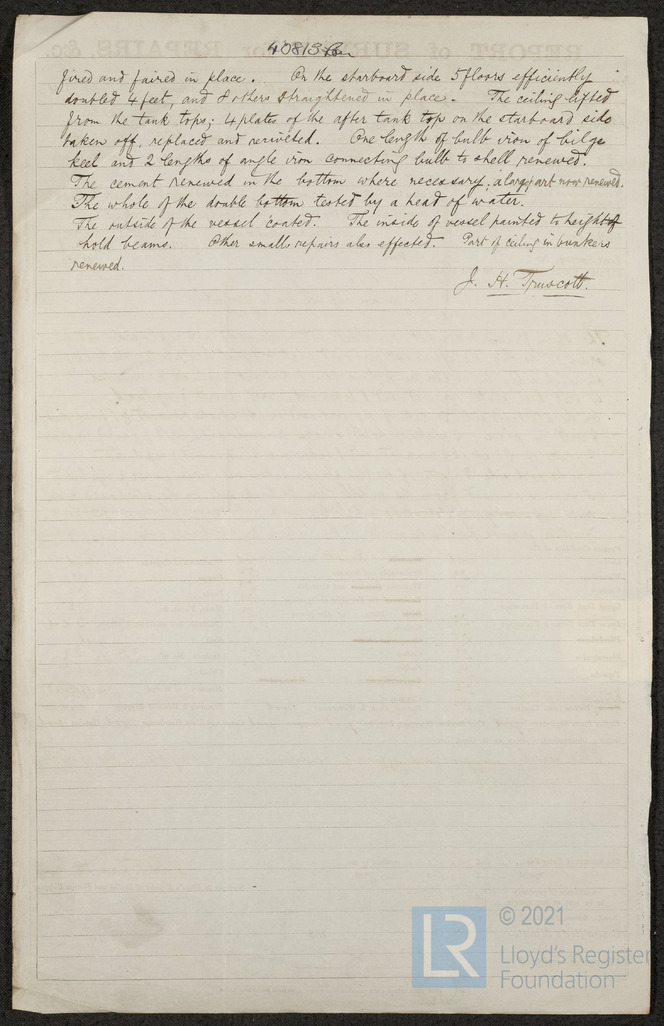 40813 Lon
fired and faired in place. On the starboard side 5 floors efficiently
doubled 4 feet, and 8 others straightened in place. The ceiling lifted
from the tank tops; 4 plates of the after tank top on the starboard side
taken off, replaced and reriveted. One length of bulb iron of bilge
keel and 2 lengths of angle iron connecting bulb to shell renewed.
The cement renewed in the bottom where necessary; a large part now renewed.
The whole of the double bottom tested by a head of water.
The outside of the vessel coated. The inside of vessel painted to height of
hold beams. Other small repairs also effected. Part of ceiling in bunkers
renewed.
J. H. Truscott.
LR
© 2021
Lloyd's Register
Foundation